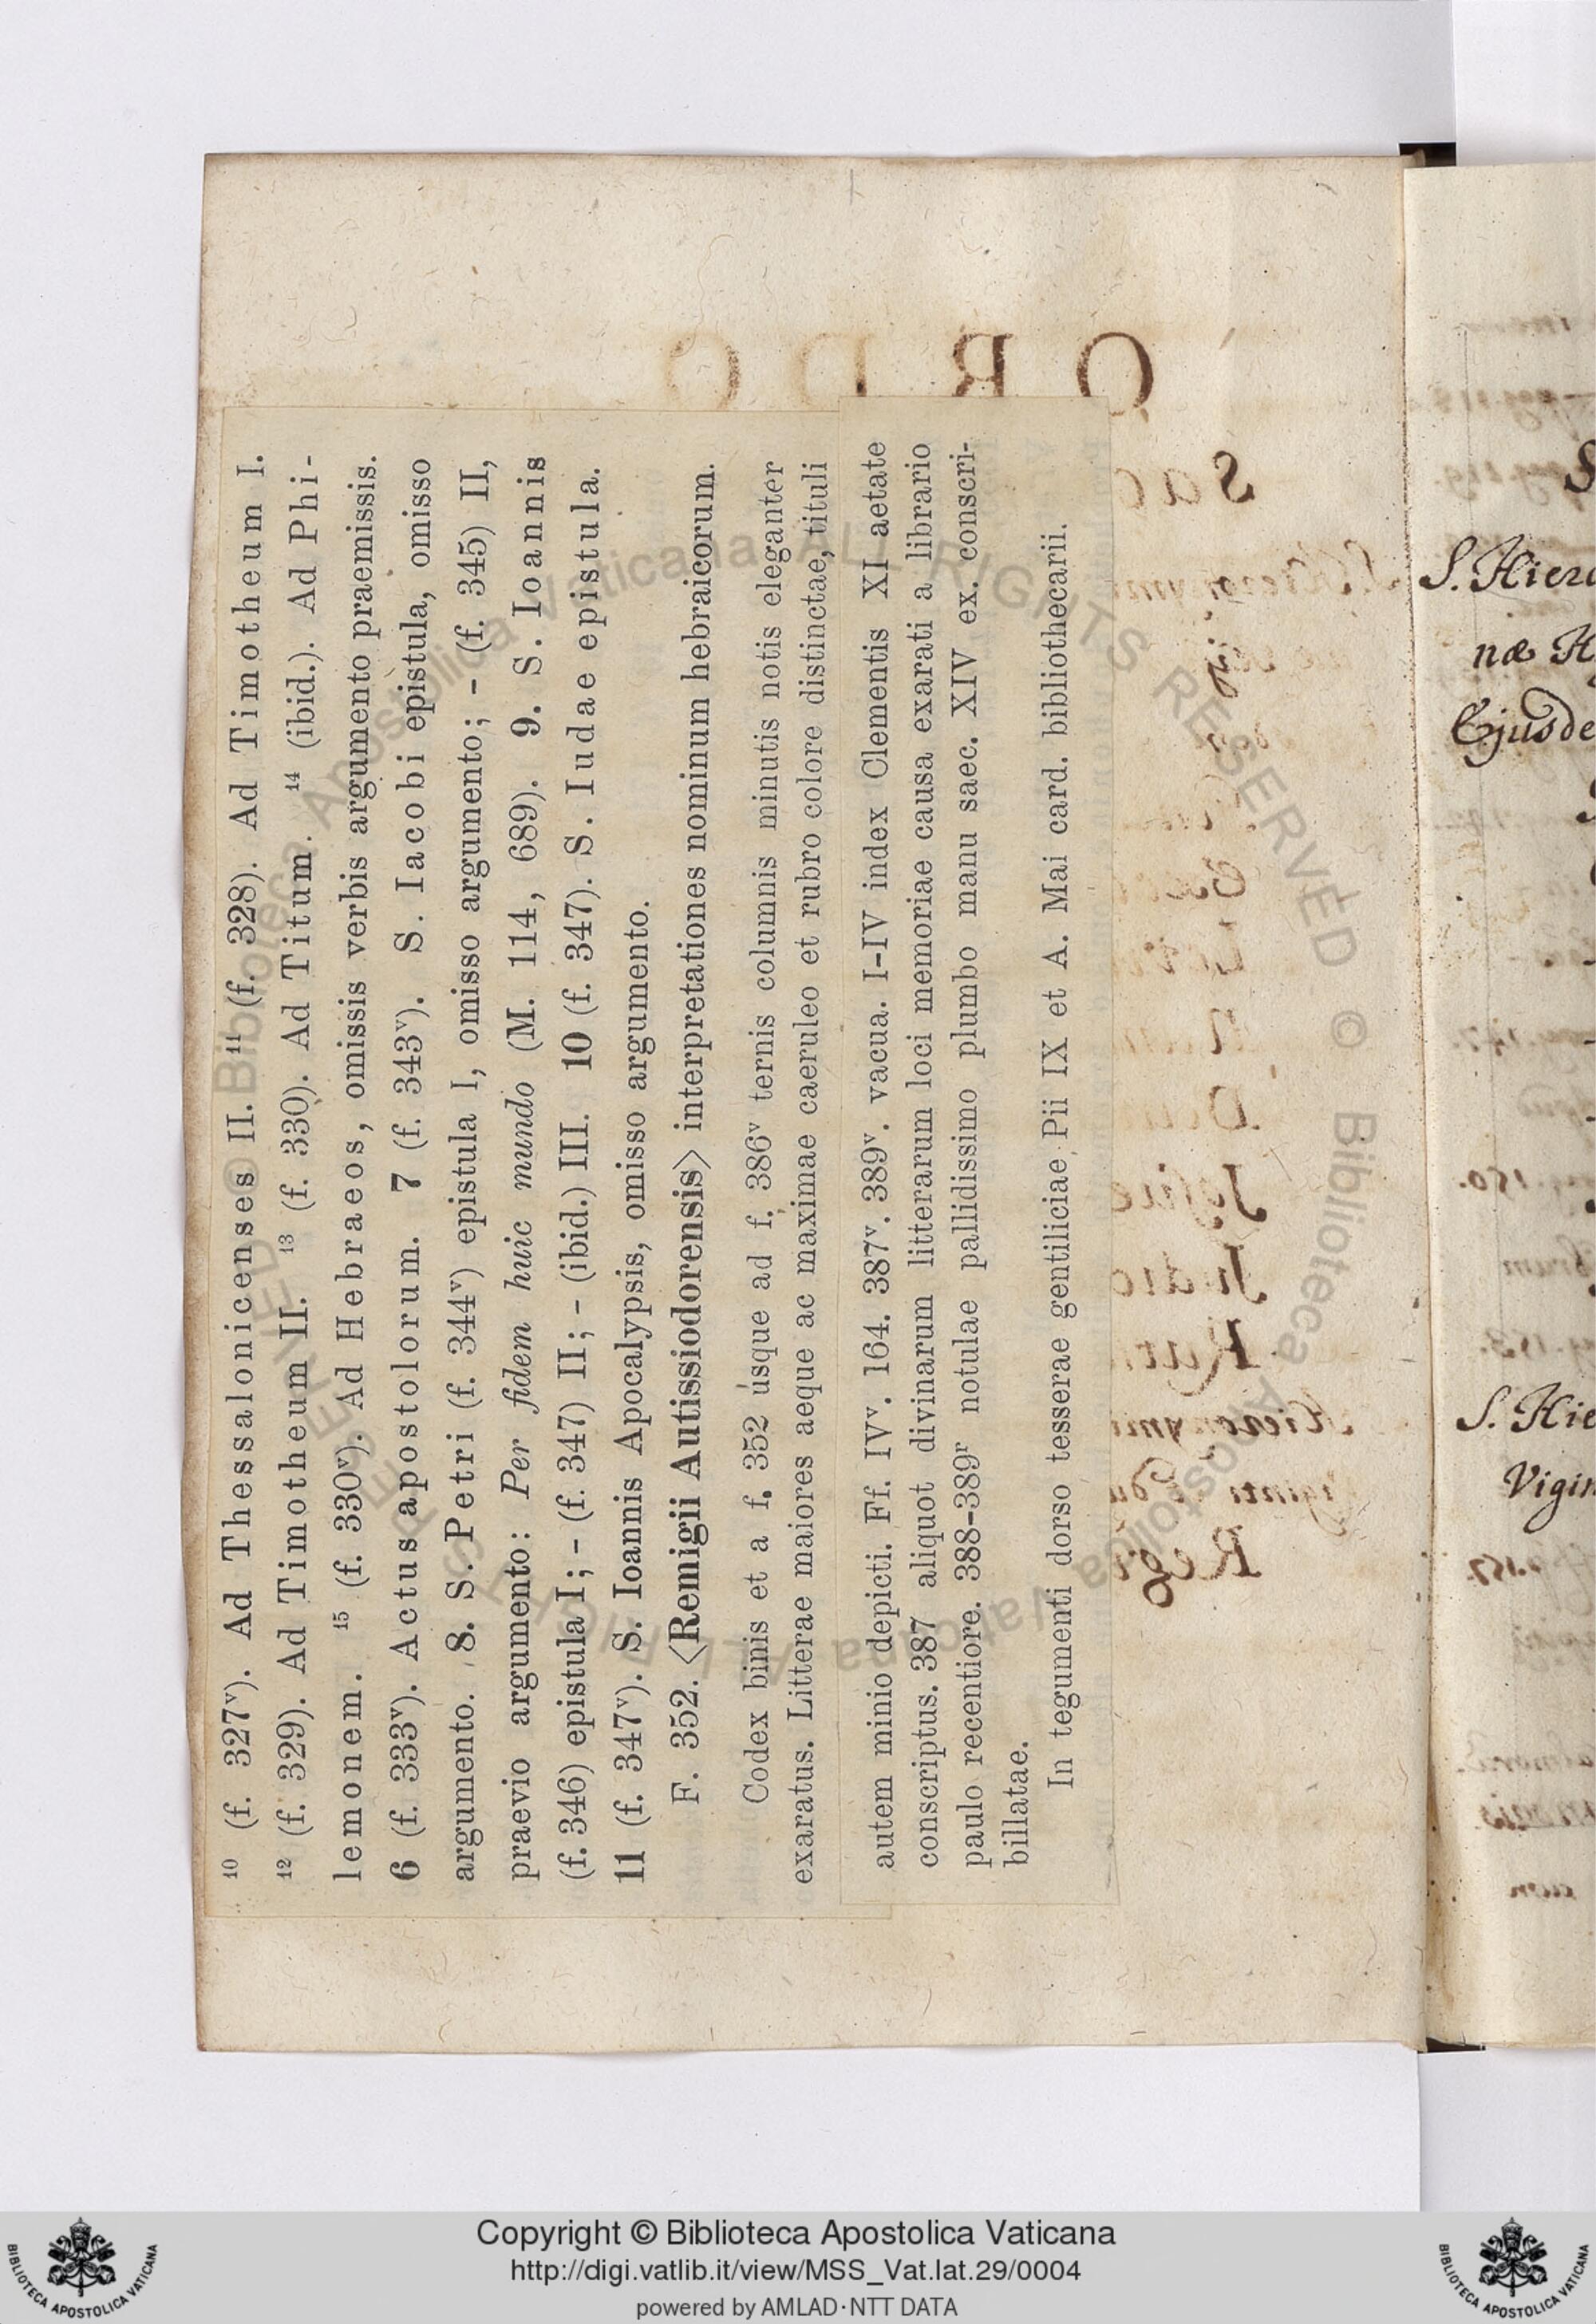 10 (f. 327v). Ad Thessalonicenses II. 11 (f. 328). Ad Timotheum I.
12 (f. 329). Ad Timotheum II. 13 (f. 330). Ad Titum. 14 (ibid.). Ad Phi-
lemonem. 15 (f. 330v). Ad Hebraeos, omissis verbis argumento praemissis.
6 (f. 333v). Actus apostolorum. 7 (f. 343v). S. Iacobi epistula, omisso
argumento. 8. S. Petri (f. 344v) epistula I, omisso argumento; - (f. 345) II,
praevio argumento: Per fidem huic mundo (M. 114, 689). 9. S. Ioannis
(f. 346) epistula I; - (f. 347) II; - (ibid.) III. 10 (f. 347). S. Iudae epistula.
11 (f. 347v). S. Ioannis Apocalypsis, omisso argumento.
F. 352. <Remigii Autissiodorensis> interpretationes nominum hebraicorum.
Codex binis et a f. 352 usque ad f. 386v ternis columnis minutis notis eleganter
exaratus. Litterae maiores aeque ac maximae caeruleo et rubro colore distinctae, tituli
autem minio depicti. Ff. IVv. 164. 387v. 389v. vacua. I-IV index Clementis XI aetate
conscriptus. 387 aliquot divinarum litterarum loci memoriae causa exarati a librario
paulo recentiore. 388-389r notulae pallidissimo plumbo manu saec. XIV ex. conscri-
billatae.
In tegumenti dorso tesserae gentiliciae Pii IX et A. Mai card. bibliothecarii.
S. Hiero
næ H
Ejusde
S. Hie
Vigin
© Biblioteca Apostolica Vaticana ALL RIGHTS RESERVED © Biblioteca Apostolica Vaticana ALL RIGHTS RESERVED
Copyright © Biblioteca Apostolica Vaticana
http://digi.vatlib.it/view/MSS_Vat.lat.29/0004
powered by AMLAD·NTT DATA
BIBLIOTECA APOSTOLICA VATICANA
BIBLIOTECA APOSTOLICA VATICANA